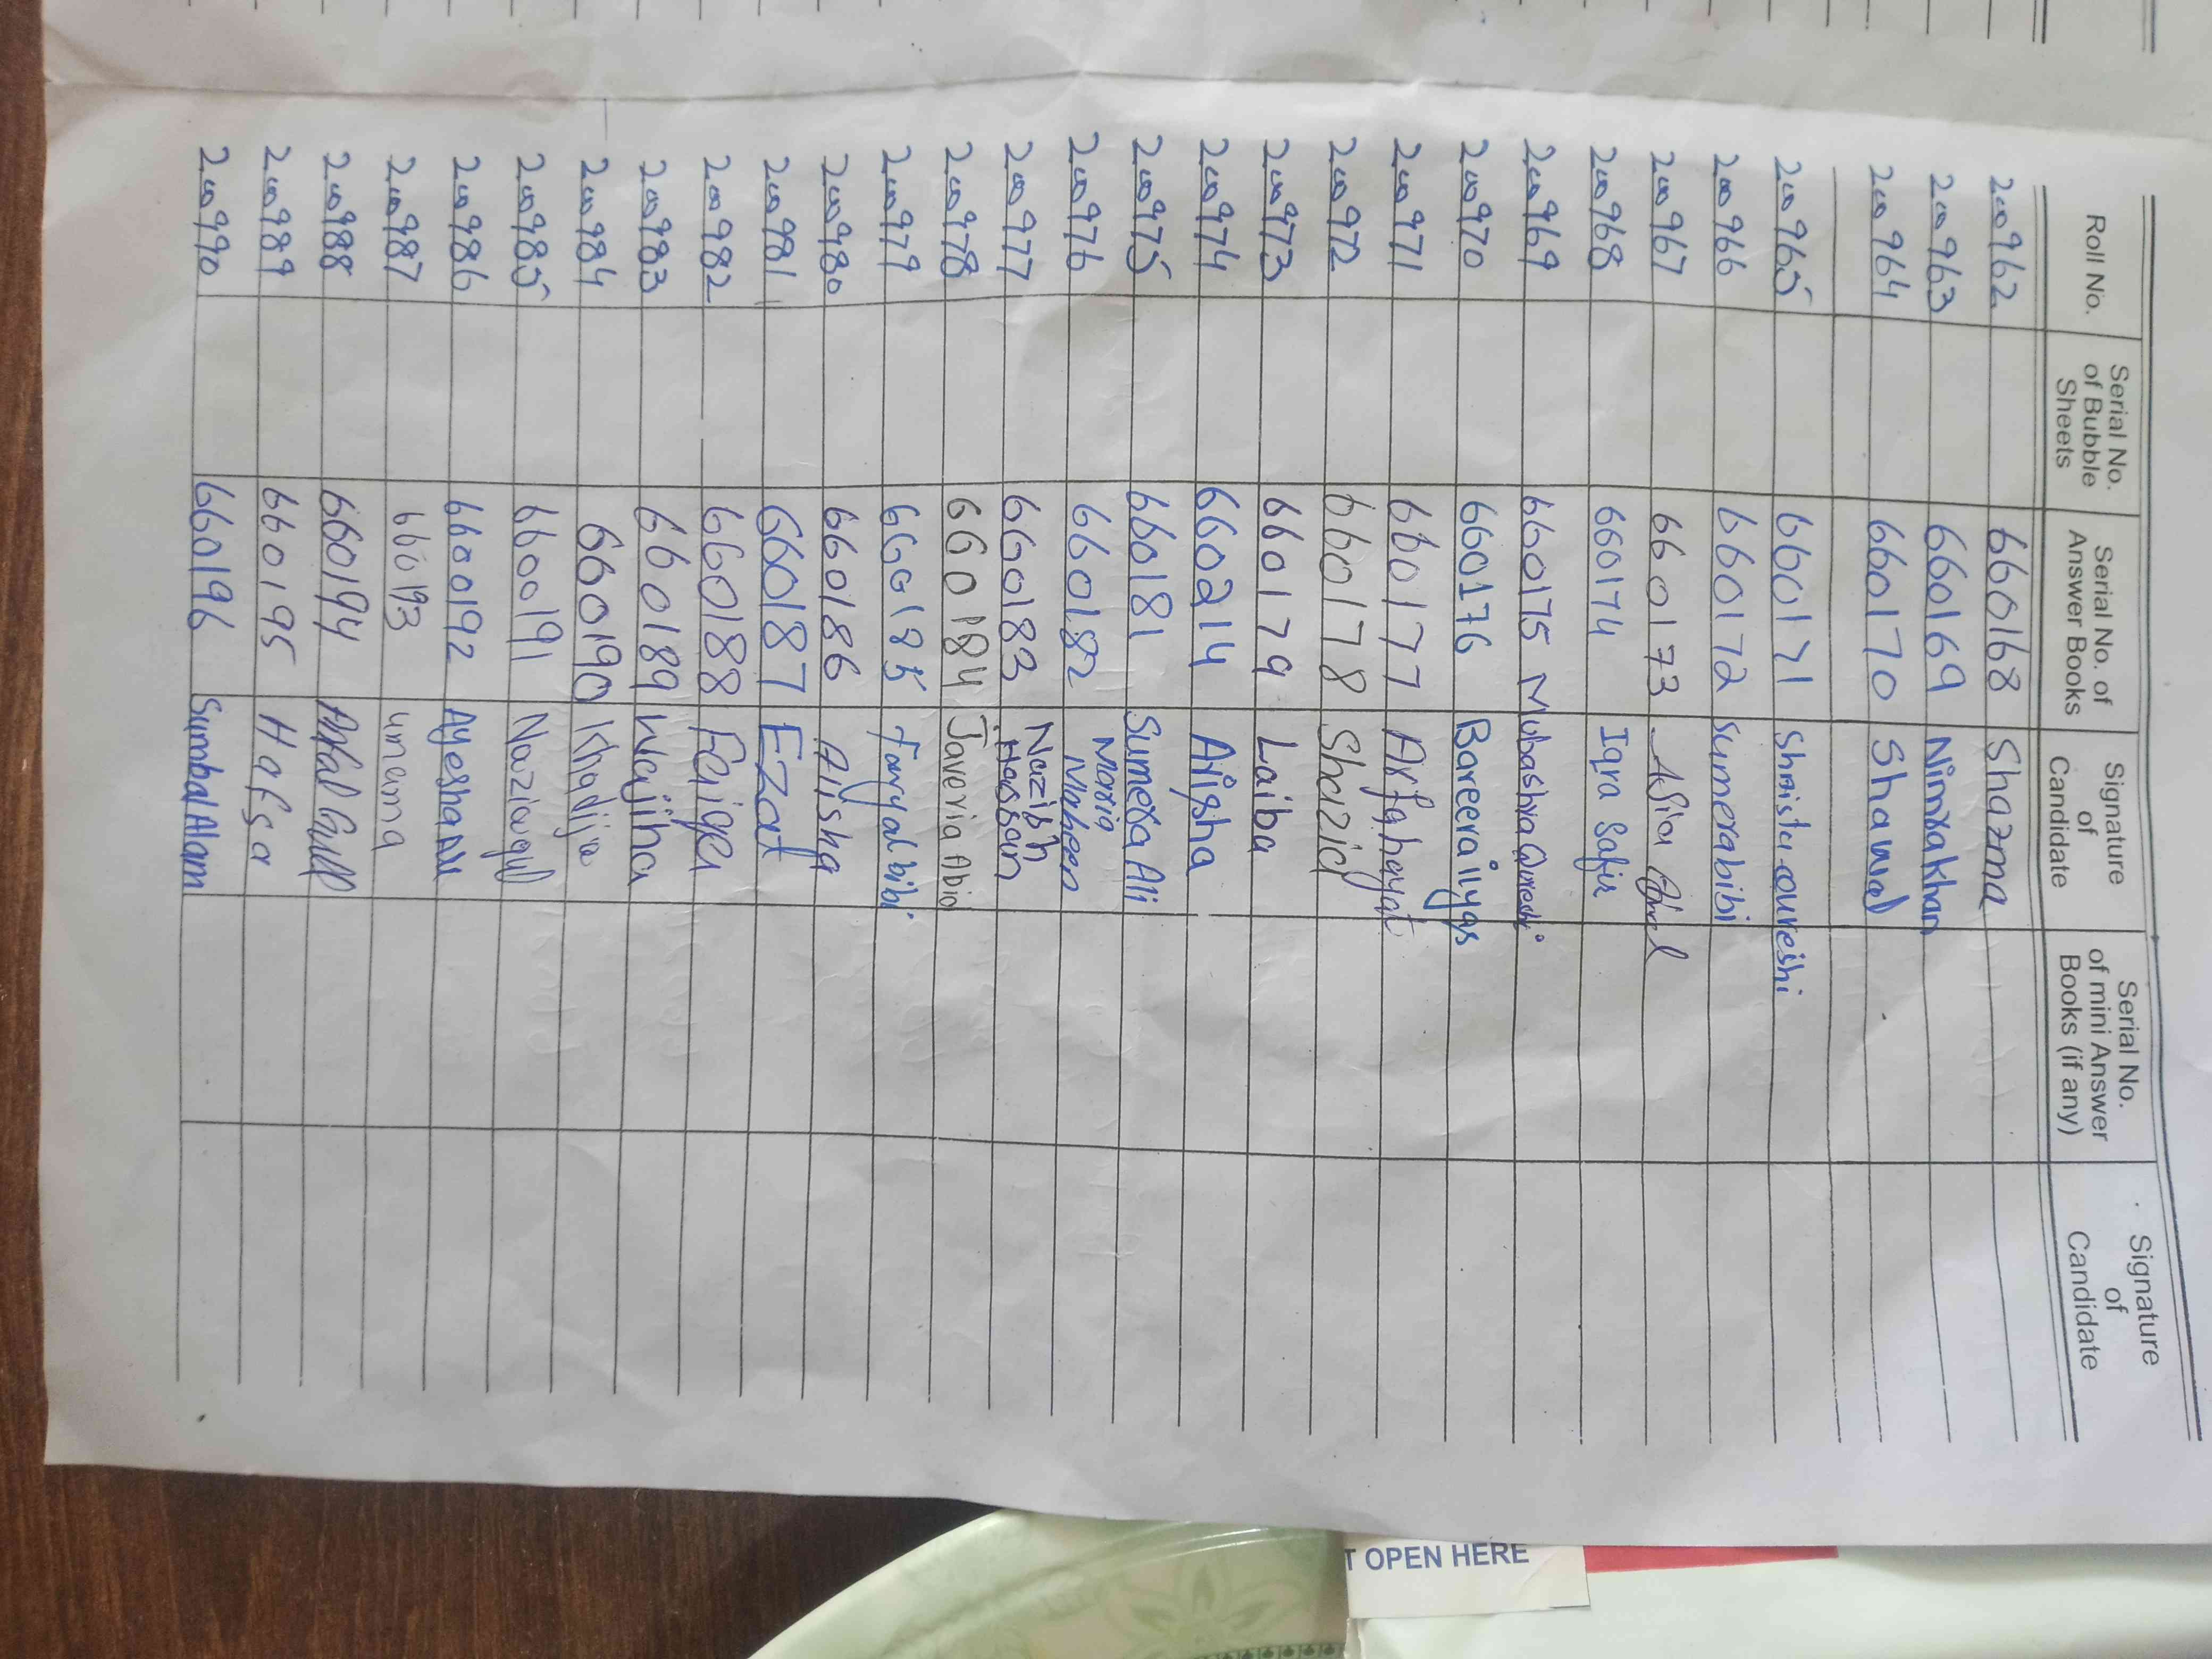 Roll No. Serial No. of Bubble Sheets Serial No. of Answer Books Signature of Candidate Serial No. of mini Answer Books (if any) Signature of Candidate
200962 660168 Shazma
200963 660169 Nimrakhan
200964 660170 Shawal
200965 660171 Shmista qureshi
200966 660172 Sumerabibi
200967 660173
200968 660174 Iqra Safir
200969 660175 Mubashra Qureshi
200970 660176 Bareera ilyas
200971 660177 Arfa hayat
200972 660178 Shazia
200973 660179 Laiba
200974 660214 Aisha
200975 660181 Sumera Ali
200976 660182 Maria Maheen
200977 660183 Nazish Hassan
200978 660184 Javeria Abid
200979 660185 Faryal bibi
200980 660186 Aiisha
200981 660187 Ezat
200982 660188 Faiqa
200983 660189 Wajiha
200984 660190 Khadija
200985 6600191 Naziagul
200986 6600192 Ayesha Ali
200987 660193 unama
200988 660194
200989 660195 Hafsa
200990 660196 Sumbal Alam
T OPEN HERE